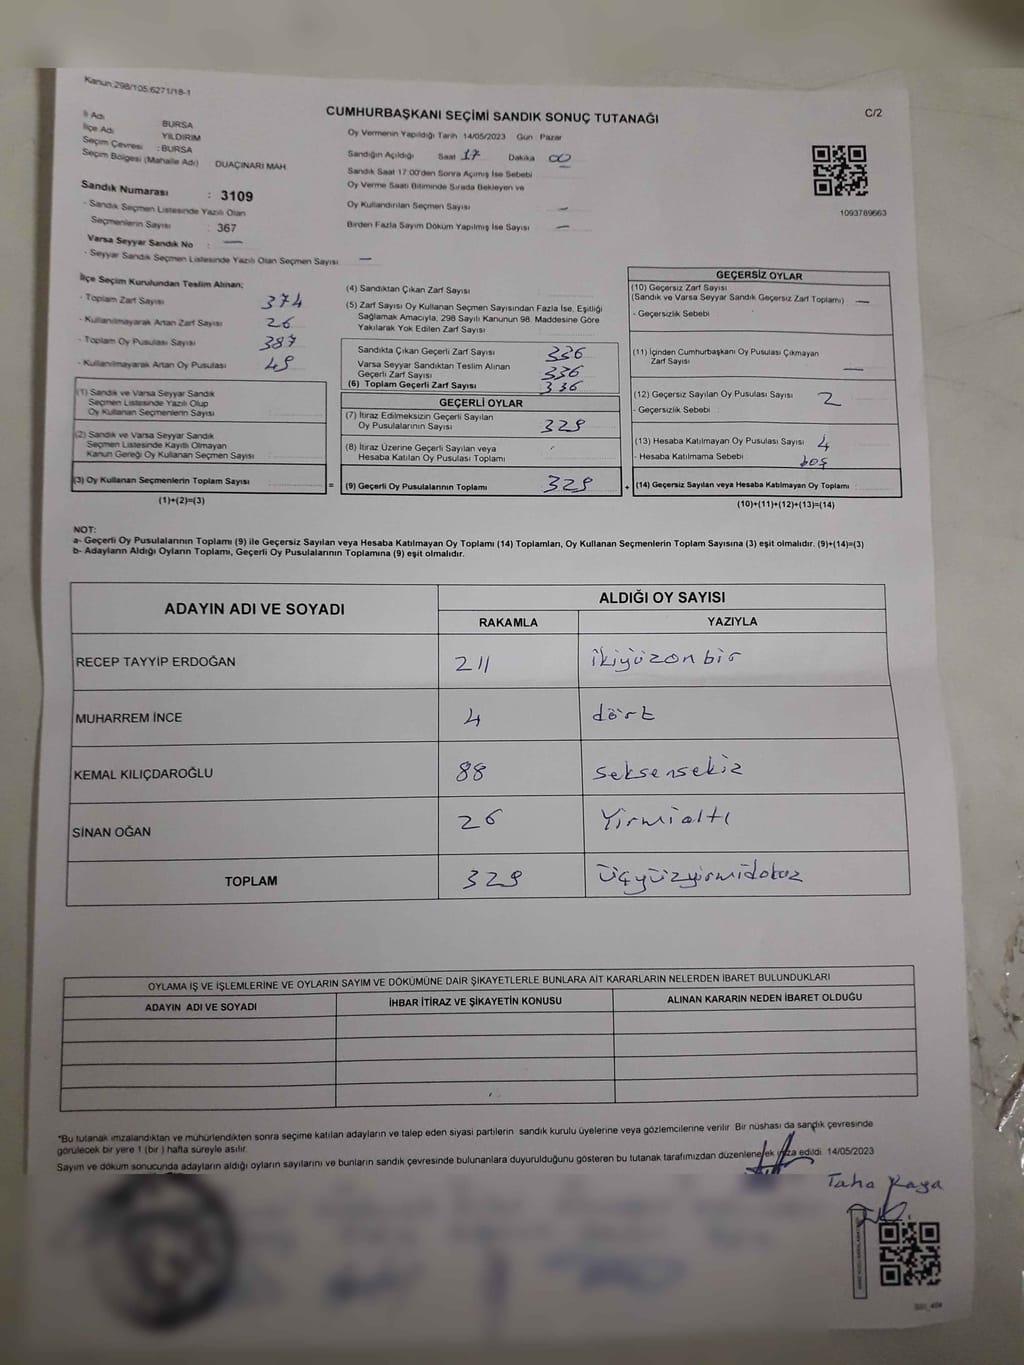 Kanun:298/105;6271/18-1
CUMHURBAŞKANI SEÇİMİ SANDIK SONUÇ TUTANAĞI
C/2
İl Adı : BURSA
İlçe Adı : YILDIRIM
Seçim Çevresi : BURSA
Seçim Bölgesi (Mahalle Adı) DUAÇINARI MAH
Sandık Numarası : 3109
- Sandık Seçmen Listesinde Yazılı Olan
Seçmenlerin Sayısı : 367
Varsa Seyyar Sandık No : —
- Seyyar Sandık Seçmen Listesinde Yazılı Olan Seçmen Sayısı —
Oy Vermenin Yapıldığı Tarih 14/05/2023 Gün Pazar
Sandığın Açıldığı Saat 17 Dakika 00
Sandık Saat 17:00'den Sonra Açımış İse Sebebi
Oy Verme Saati Bitiminde Sırada Bekleyen ve
Oy Kullandırılan Seçmen Sayısı —
Birden Fazla Sayım Döküm Yapılmış İse Sayısı —
1093789663
İlçe Seçim Kurulundan Teslim Alınan;
- Toplam Zarf Sayısı 374
- Kullanılmayarak Artan Zarf Sayısı 26
- Toplam Oy Pusulası Sayısı 387
- Kullanılmayarak Artan Oy Pusulası 49
(1) Sandık ve Varsa Seyyar Sandık
Seçmen Listesinde Yazılı Olup
Oy Kullanan Seçmenlerin Sayısı
(2) Sandık ve Varsa Seyyar Sandık
Seçmen Listesinde Kayıtlı Olmayan
Kanun Gereği Oy Kullanan Seçmen Sayısı
(3) Oy Kullanan Seçmenlerin Toplam Sayısı
(1)+(2)=(3)
(4) Sandıktan Çıkan Zarf Sayısı
(5) Zarf Sayısı Oy Kullanan Seçmen Sayısından Fazla İse, Eşitliği
Sağlamak Amacıyla, 298 Sayılı Kanunun 98. Maddesine Göre
Yakılarak Yok Edilen Zarf Sayısı
Sandıkta Çıkan Geçerli Zarf Sayısı 336
Varsa Seyyar Sandıktan Teslim Alınan
Geçerli Zarf Sayısı 336
(6) Toplam Geçerli Zarf Sayısı 336
GEÇERLİ OYLAR
(7) İtiraz Edilmeksizin Geçerli Sayılan
Oy Pusulalarının Sayısı 329
(8) İtiraz Üzerine Geçerli Sayılan veya
Hesaba Katılan Oy Pusulası Toplamı
= (9) Geçerli Oy Pusulalarının Toplamı 329
GEÇERSİZ OYLAR
(10) Geçersiz Zarf Sayısı
(Sandık ve Varsa Seyyar Sandık Geçersiz Zarf Toplamı) —
- Geçersizlik Sebebi
(11) İçinden Cumhurbaşkanı Oy Pusulası Çıkmayan
Zarf Sayısı —
(12) Geçersiz Sayılan Oy Pusulası Sayısı 2
- Geçersizlik Sebebi
(13) Hesaba Katılmayan Oy Pusulası Sayısı 4
- Hesaba Katılmama Sebebi boş
+ (14) Geçersiz Sayılan veya Hesaba Katılmayan Oy Toplamı
(10)+(11)+(12)+(13)=(14)
NOT:
a- Geçerli Oy Pusulalarının Toplamı (9) ile Geçersiz Sayılan veya Hesaba Katılmayan Oy Toplamı (14) Toplamları, Oy Kullanan Seçmenlerin Toplam Sayısına (3) eşit olmalıdır. (9)+(14)=(3)
b- Adayların Aldığı Oyların Toplamı, Geçerli Oy Pusulalarının Toplamına (9) eşit olmalıdır.
ADAYIN ADI VE SOYADI
ALDIĞI OY SAYISI
RAKAMLA YAZIYLA
RECEP TAYYİP ERDOĞAN 211 ikiyüzonbir
MUHARREM İNCE 4 dört
KEMAL KILIÇDAROĞLU 88 seksensekiz
SİNAN OĞAN 26 Yirmialtı
TOPLAM 329 üçyüzyirmidokuz
OYLAMA İŞ VE İŞLEMLERİNE VE OYLARIN SAYIM VE DÖKÜMÜNE DAİR ŞİKAYETLERLE BUNLARA AİT KARARLARIN NELERDEN İBARET BULUNDUKLARI
ADAYIN ADI VE SOYADI İHBAR İTİRAZ VE ŞİKAYETİN KONUSU ALINAN KARARIN NEDEN İBARET OLDUĞU
*Bu tutanak imzalandıktan ve mühürlendikten sonra seçime katılan adayların ve talep eden siyasi partilerin sandık kurulu üyelerine veya gözlemcilerine verilir. Bir nüshası da sandık çevresinde
görülecek bir yere 1 (bir) hafta süreyle asılır.
Sayım ve döküm sonucunda adayların aldığı oyların sayılarını ve bunların sandık çevresinde bulunanlara duyurulduğunu gösteren bu tutanak tarafımızdan düzenlenerek imza edildi. 14/05/2023
Taha Kaya